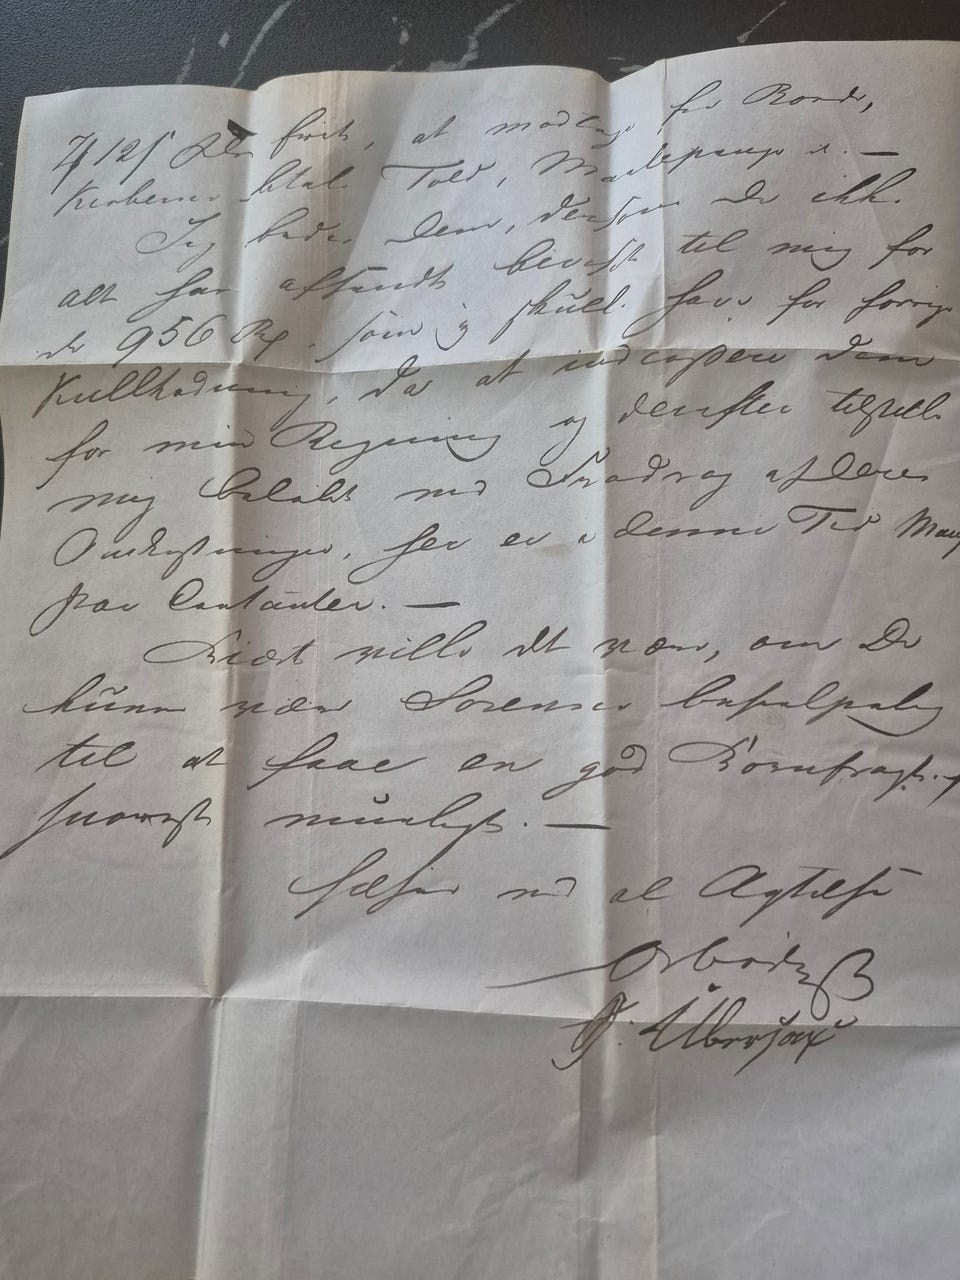 at modtage for Borde,
Kiøberen betale Told, Maalepenge
Jeg beder Dem, dersom De ikke
alt har afsendt beviist til mig for
de 956 som jeg skulde have for forrige
Kulladning, da at indcassere dem
for min Regning og derefter tilstille
mig beløbet med Fradrag af Deres
Omkostninger, her er i denne Tid
paa Contanter. —
Kiært ville det være, om De
kunne være Sorensen behjælpelig
til at faae en god Kornfragt
snarest mueligt. —
med al Agtelse
Ærbødigst
Ubersax